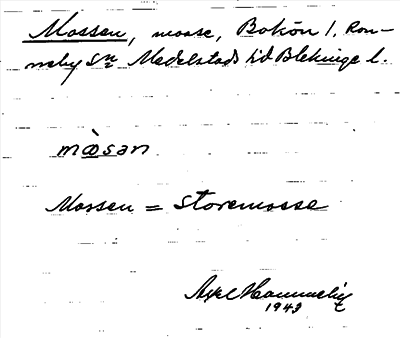 Mossen, mosse, Bokön 1. Ron-
neby Sn Medelstads hd Blekinge l.
mɷ̀san
Mossen = Storemosse
Axel
1943